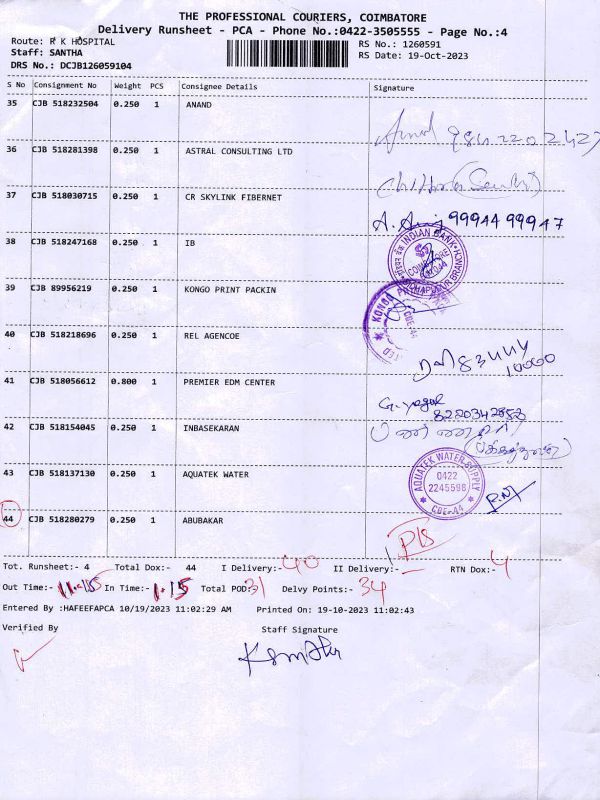 THE PROFESSIONAL COURIERS, COIMBATORE
Delivery Runsheet - PCA - Phone No.:0422-3505555 - Page No.:4
Route: R K HOSPITAL
RS No.: 1260591
Staff: SANTHA
RS Date: 19-Oct-2023
DRS No.: DCJB126059104
S No Consignment No Weight PCS Consignee Details Signature
35 CJB 518232504 0.250 1 ANAND
36 CJB 518281398 0.250 1 ASTRAL CONSULTING LTD
37 CJB 518030715 0.250 1 CR SKYLINK FIBERNET
99944 99947
38 CJB 518247168 0.250 1 IB
INDIAN BANK
COIMBATORE
39 CJB 89956219 0.250 1 KONGO PRINT PACKIN
KONGO
CBE-44
40 CJB 518218696 0.250 1 REL AGENCOE
41 CJB 518056612 0.800 1 PREMIER EDM CENTER
42 CJB 518154045 0.250 1 INBASEKARAN
43 CJB 518137130 0.250 1 AQUATEK WATER
AQUATEK WATER SUPPLY
0422
2245598
CBE-44
44 CJB 518280279 0.250 1 ABUBAKAR
Tot. Runsheet:- 4 Total Dox:- 44 I Delivery:- 40 II Delivery:- - RTN Dox:- 4
Out Time:- 11.15 In Time:- 1.15 Total POD: 31 Delvy Points:- 34
Entered By :HAFEEFAPCA 10/19/2023 11:02:29 AM Printed On: 19-10-2023 11:02:43
Verified By Staff Signature